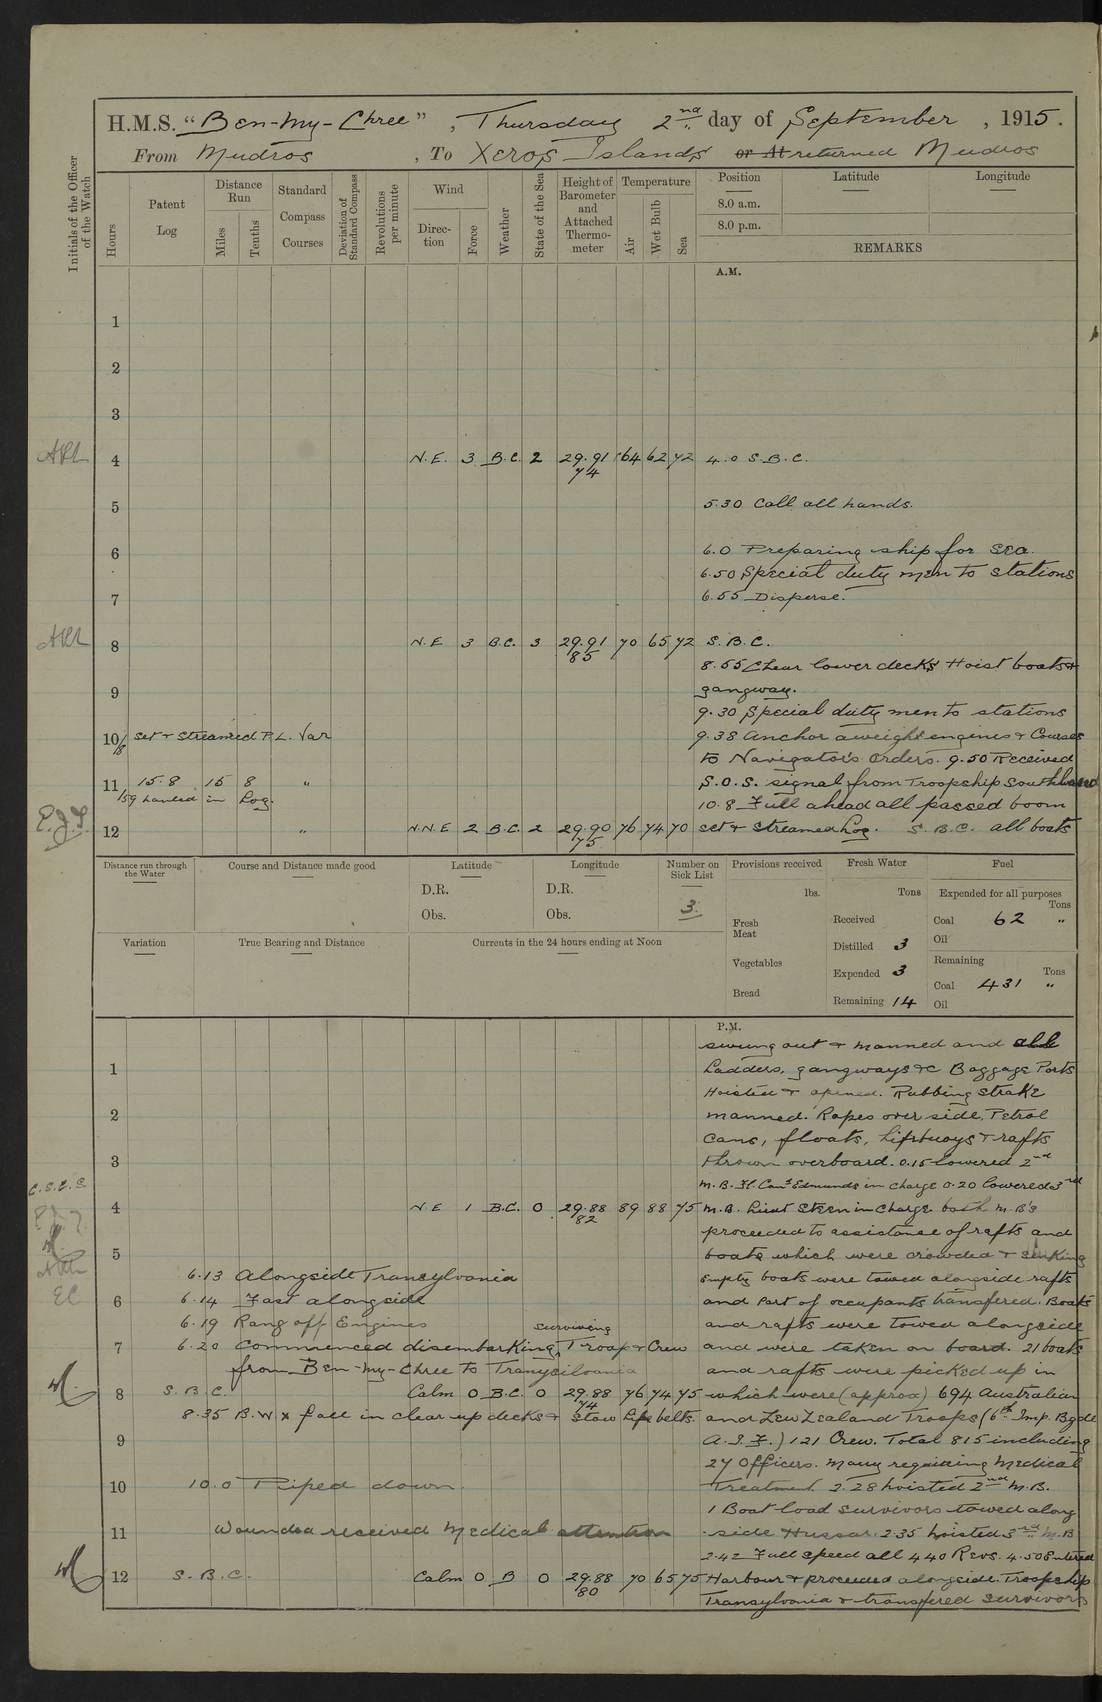 H.M.S. "Ben-my-Chree", Thursday 2nd day of September, 1915.
From Mudros, To Xeros Islands or At returned Mudros
Initials of the Officer of the Watch
Hours
Patent Log
Distance Run
Miles
Tenths
Standard Compass Courses
Deviation of Standard Compass
Revolutions per minute
Wind
Direction
Force
Weather
State of the Sea
Height of Barometer and Attached Thermometer
Temperature
Air
Wet Bulb
Sea
Position
8.0 a.m.
8.0 p.m.
Latitude
Longitude
REMARKS
A.M.
1
2
3
4 N.E. 3 B.C. 2 29.91 64 62 72 4.0 S.B.C.
74
5 5.30 Call all hands.
6 6.0 Preparing ship for sea.
6.50 Special duty men to stations
7 6.55 Disperse.
8 N.E 3 B.C. 3 29.91 70 65 72 S.B.C.
85
8.55 Clear lower decks Hoist boats &
9 gangway.
9.30 Special duty men to stations
10/8 Set & Streamed P.L. Var 9.38 Anchor aweigh engines & Courses
to Navigator's orders. 9.50 Received
11 15.8 15 8 " S.O.S. signal from Troopship Southland
/59 handed in Log. 10.8 Full ahead all passed boom
E.J.T. 12 " N.N.E 2 B.C. 2 29.90 76 74 70 set & Streamed Log. S.B.C. all boats
75
Distance run through the Water
Course and Distance made good
Latitude
D.R.
Obs.
Longitude
D.R.
Obs.
Number on Sick List
3.
Provisions received
lbs.
Fresh Meat
Vegetables
Bread
Fresh Water
Tons
Received
Distilled 3
Expended 3
Remaining 14
Fuel
Expended for all purposes
Tons
Coal 62 "
Oil
Remaining
Tons
Coal 431 "
Oil
Variation
True Bearing and Distance
Currents in the 24 hours ending at Noon
P.M.
swung out & manned and all
1 Ladders, gangways &c Baggage Ports
Hoisted & opened. Rubbing strake
2 manned. Ropes over side, Petrol
cans, floats, lifebuoys & rafts
3 thrown overboard. 0.15 lowered 2nd
M.B. Fl. Comr Edmunds in charge 0.20 lowered 3rd
4 N.E 1 B.C. 0 29.88 89 88 75 M.B. Lieut Steen in charge both M.B's
82
proceeded to assistance of rafts and
5 boats which were crowded & sinking
6.13 Alongside Transylvania Empty boats were towed alongside rafts
6 6.14 Fast alongside and Part of occupants transfered. Boats
6.19 Rang off Engines and rafts were towed alongside
surviving
7 6.20 Commenced disembarking Troops & Crew and were taken on board. 21 boats
from Ben-my-Chree to Transylvania and rafts were picked up in
8 S.B.C. Calm 0 B.C. 0 29.88 76 74 75 which were (approx) 694 Australian
74
8.35 B.W x fall in clear up decks & stow life belts. and New Zealand Troops (6th Imp. Bgde
9 A.I.F.) 121 Crew. Total 815 including
27 Officers. Many requiring Medical
10 10.0 Piped down. Treatment 2.28 hoisted 2nd M.B.
1 Boat load Survivors towed along
11 Wounded received Medical attention side Hussar. 2.35 hoisted 3rd M.B
2.42 Full speed all 440 Revs. 4.50 Entered
12 S.B.C. Calm 0 B 0 29.88 70 65 75 Harbour & proceeded alongside Troopship
80
Transylvania & transfered survivors